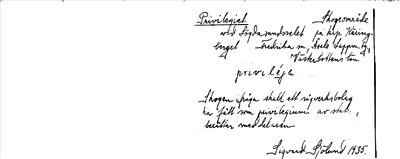 Privilegiet Skogsområde
vid Lögdasundsselet på krp. Käring-
berget Fredrika sn, Åsele lappm.
Västerbottens län
privilégo
Skogen ifråga skall ett sågverksbolag
ha fått som privilegium av stat,
berättar meddelaren
Sigvard 1935.